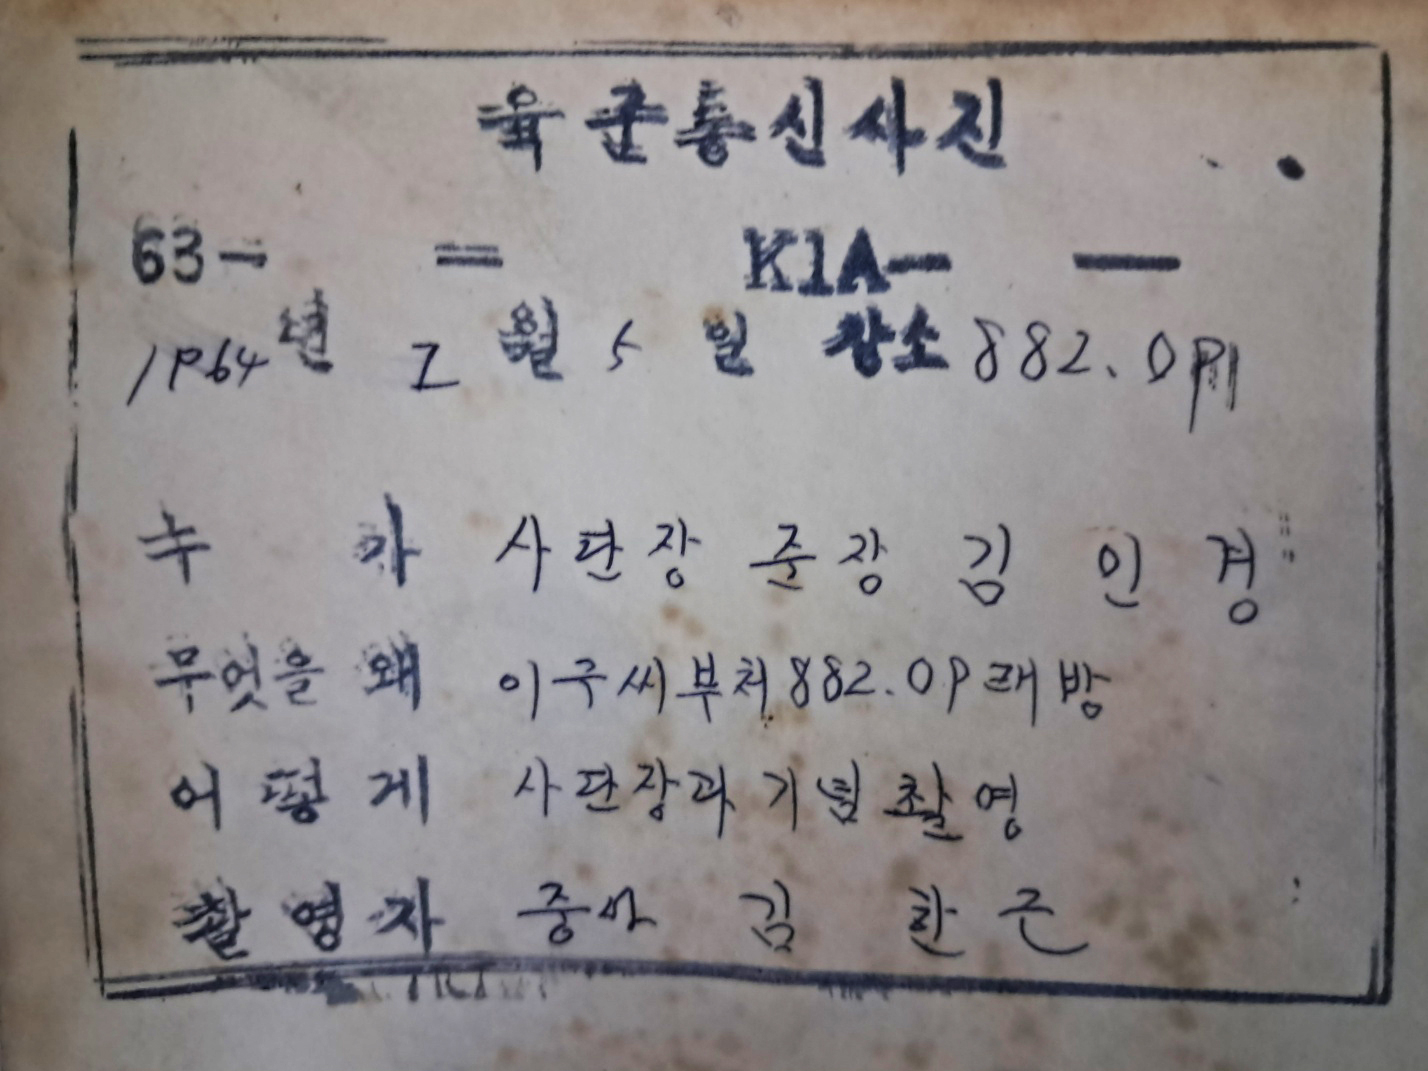 육군통신사진
63- = K1A- —
1964년 7월 5일 장소 882.OP
누가 사단장 준장 김인경
무엇을 왜 이구씨부처882.OP래방
어떻게 사단장과 기념촬영
촬영자 중사 김한근